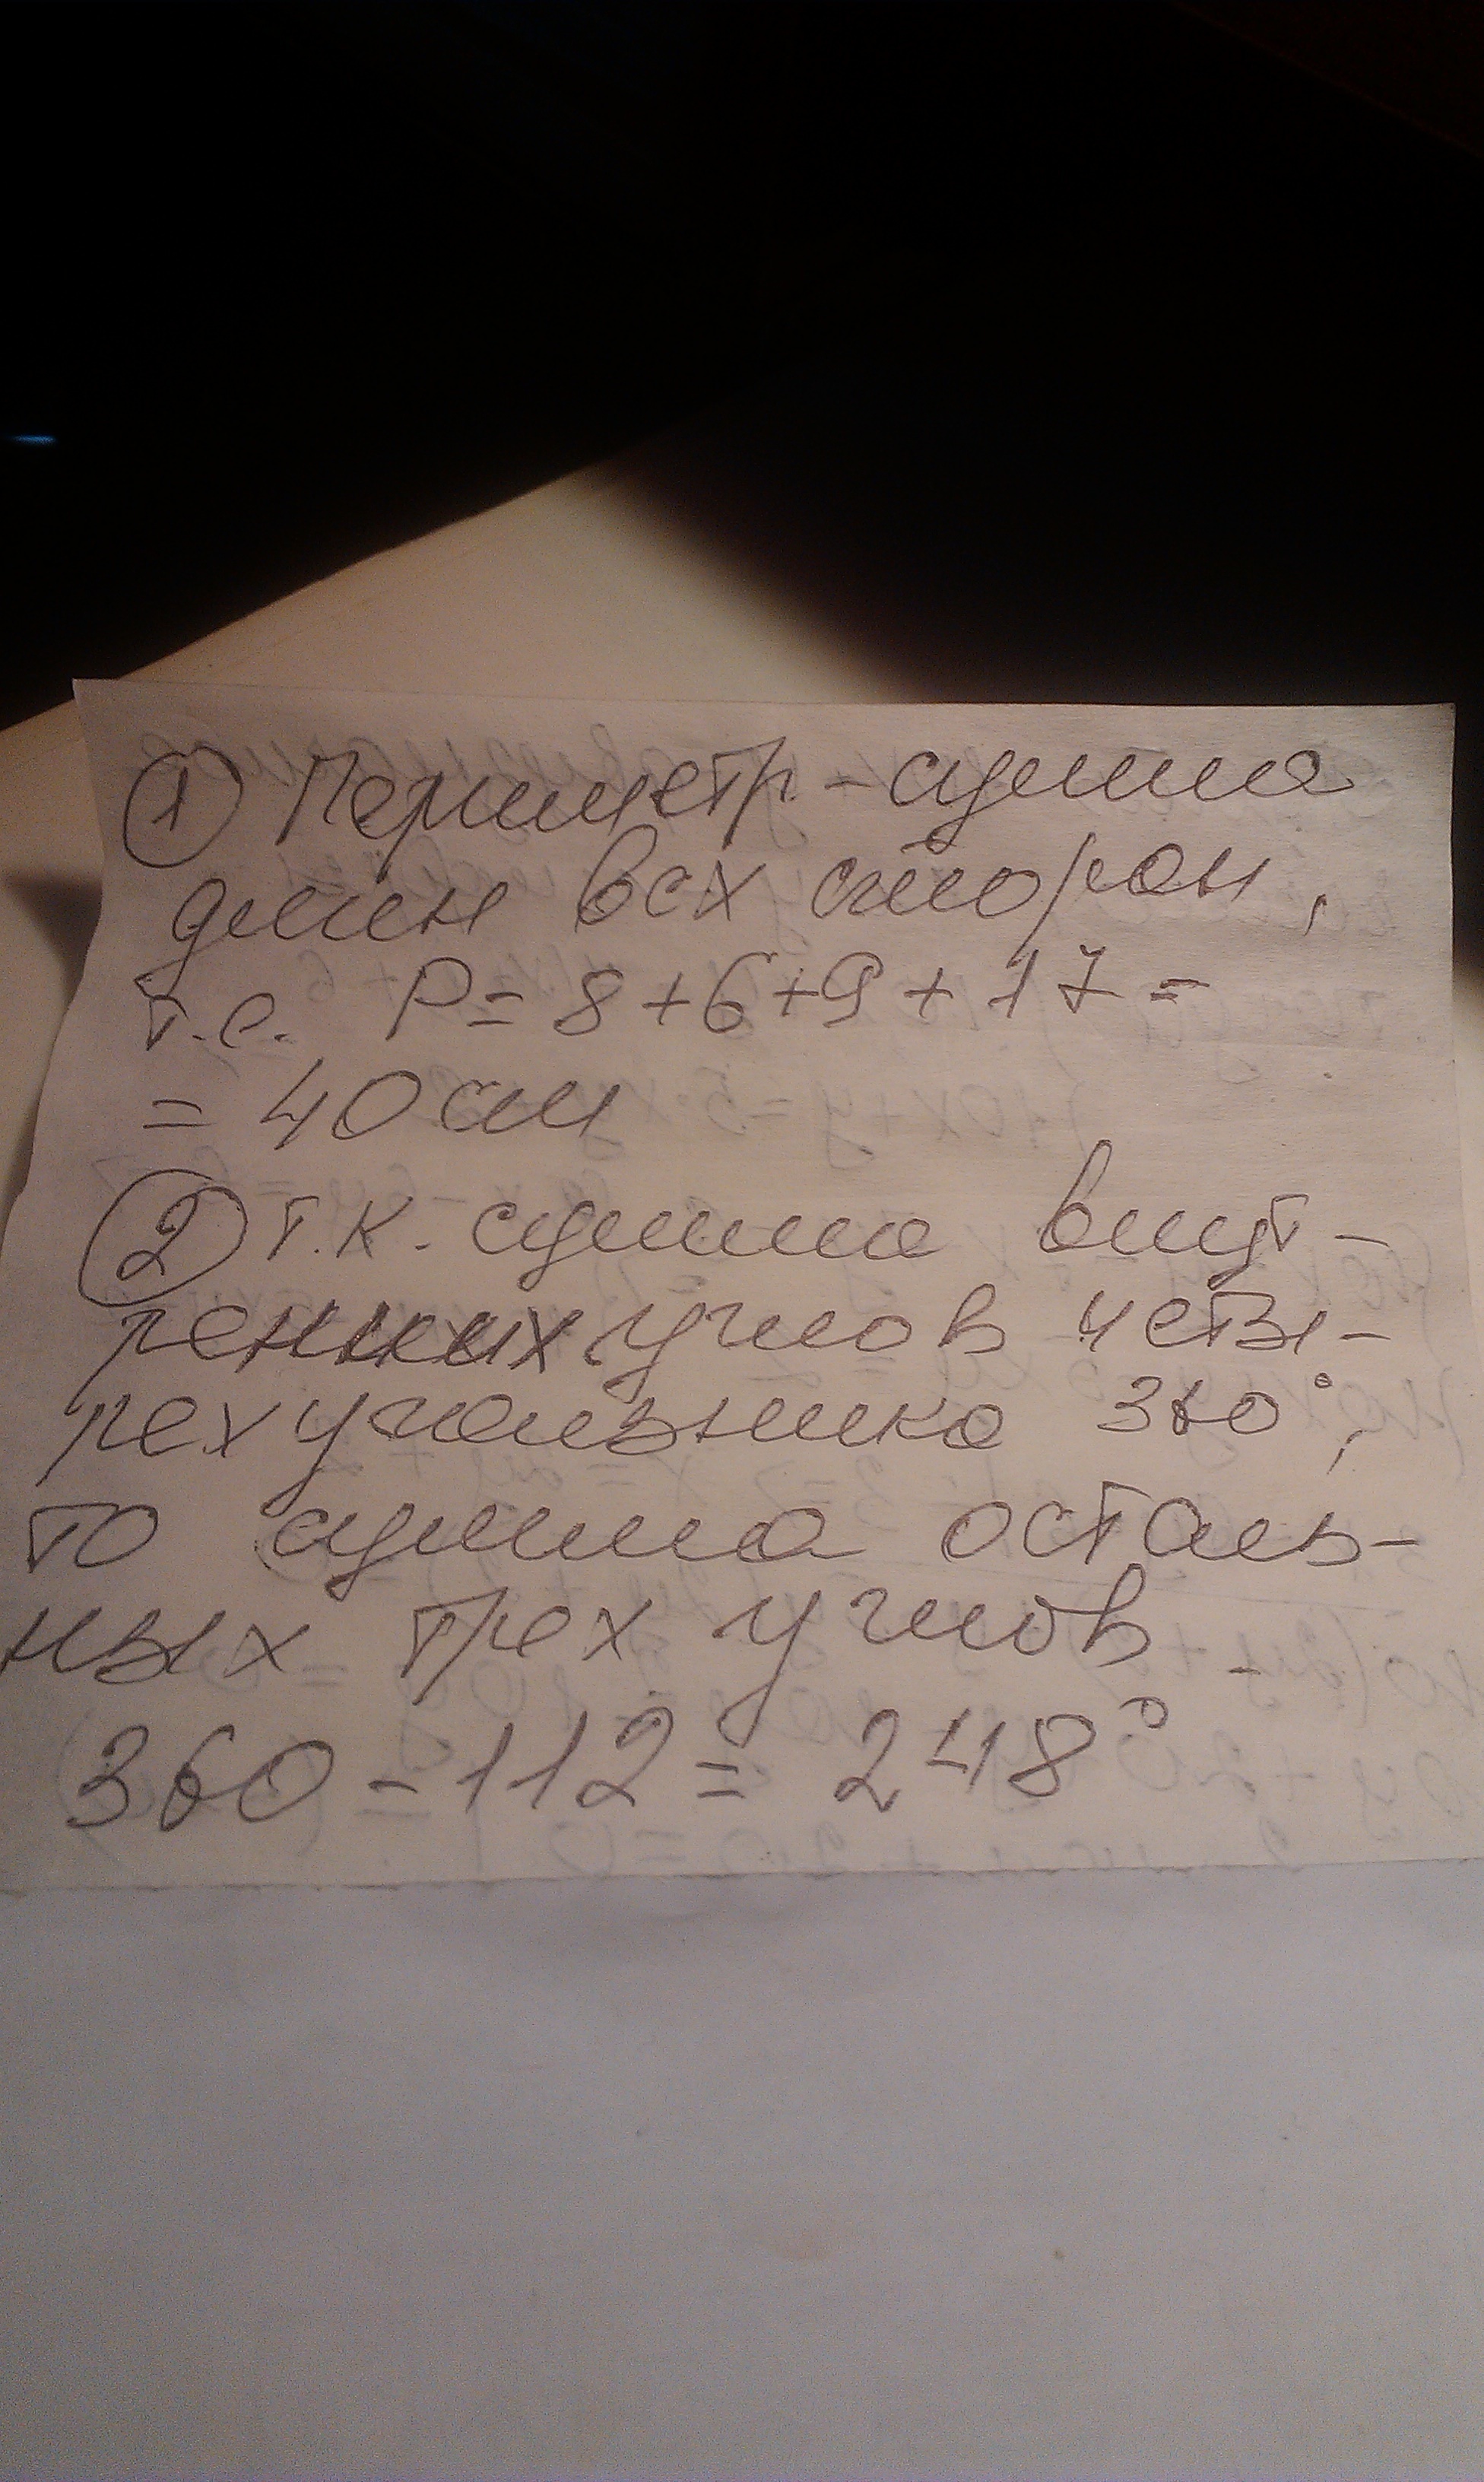 ① Периметр - сумма
длин всх сторон,
т.е. P = 8 + 6 + 9 + 17 =
= 40 см
② т.к. сумма внут-
ренних углов четы-
рехугольника 360°,
то сумма осталь-
ных трех углов -
360 - 112 = 248°